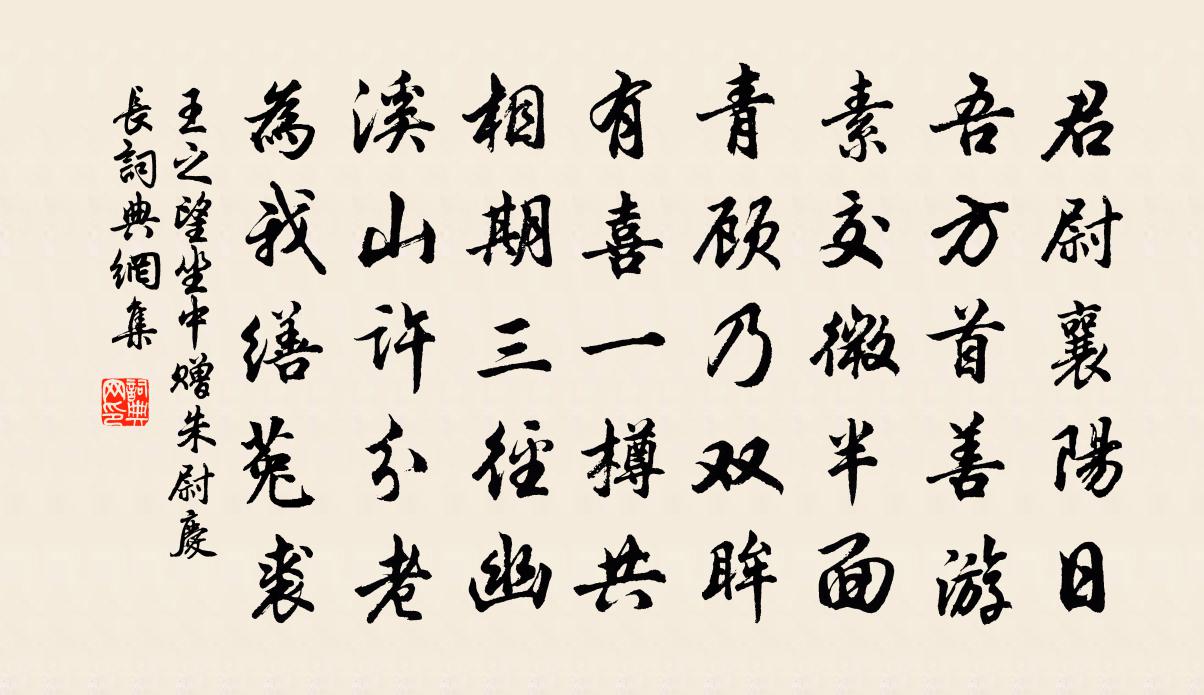 君尉襄陽日
吾方首善游
素交微半面
青顾乃双眸
有喜一樽共
相期三徑幽
溪山許分老
為我繕菟裘
王之望坐中赠朱尉慶
長詞典網集
詞典网印